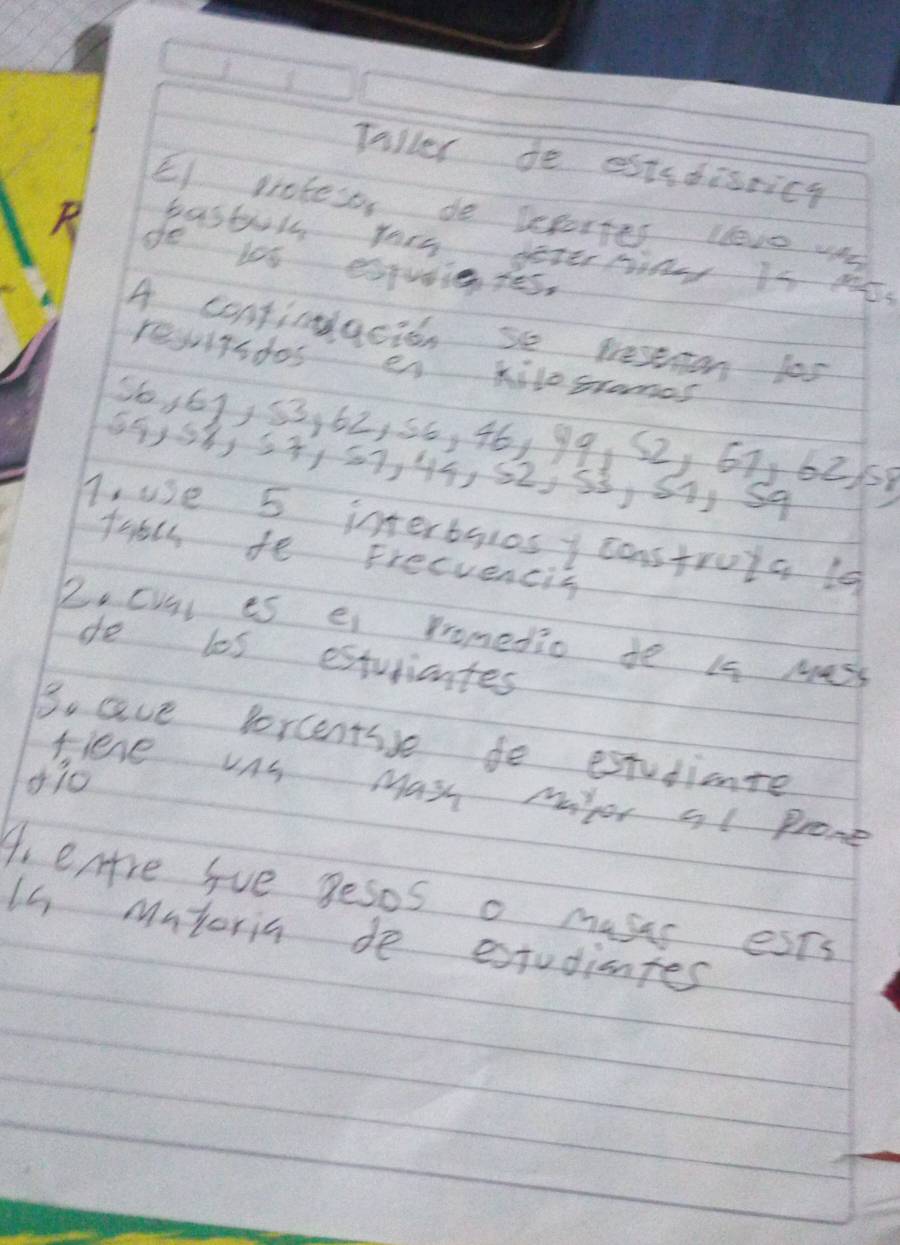 Taller de estadistica
El profesor de deportes llevo una
bascula para determinar la masa
de los estudiantes.
A continuación se presentan los
resultados en kilogramos
56, 61, 53, 62, 56, 46, 49, 52, 61, 62, 58
59, 57, 51, 44, 52, 53, 51, 59
1. use 5 interbalos y construya la
tabla de Frecuencia
2. cual es el promedio de la masa
de los estudiantes
3. que porcentaje de estudiante
tiene una masa mayor al prome
dio
4. entre que pesos o masas esta
la mayoria de estudiantes
R